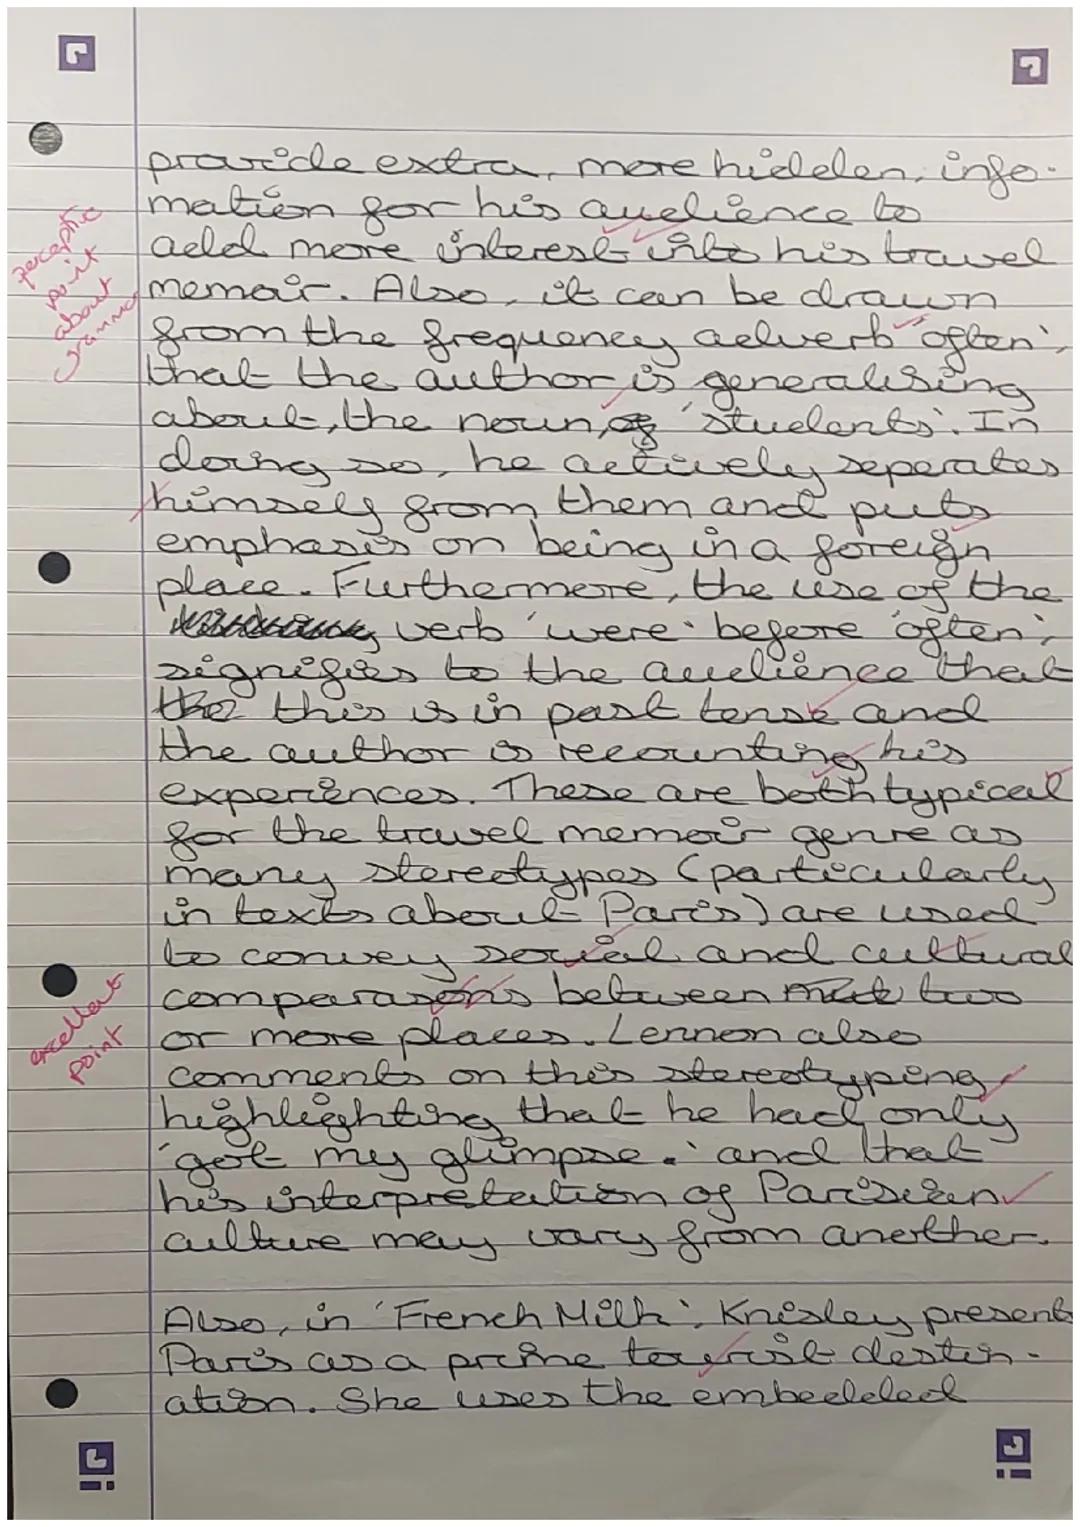 provide extra, more hidden, info-
perceptive point about grammar
mation for his audience to
add more interest into his travel
memoir. Also, it can be drawn
from the frequency adverb 'often',
that the author is generalising
about, the noun, of 'students'. In
doing so, he actively seperates
himself from them and puts
emphasis on being in a foreign
place. Furthermore, the use of the
verb 'were' before 'often',
signifies to the audience that
the this is in past tense and
the author is recounting his
experiences. These are both typical
for the travel memoir genre as
many stereotypes (particularly
in texts about Paris) are used
to convey social and cultural
comparasons between two
excellent point
or more places. Lennon also
comments on this stereotyping
highlighting that he had only
'got my glimpse.' and that
his interpretation of Parisian
culture may vary from another.
Also, in 'French Milk', Knisley presents
Paris as a prime tourist destin-
ation. She uses the embedded